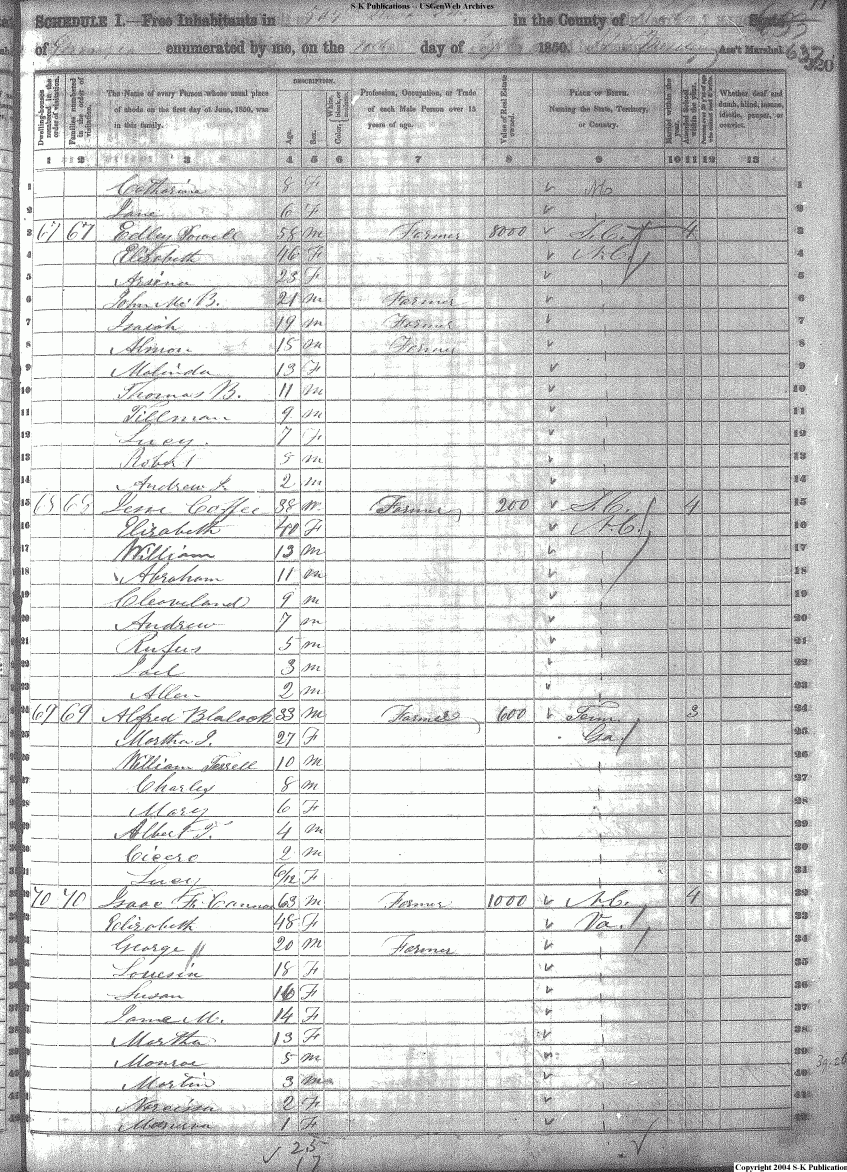 S-K Publications -- USGenWeb Archives
SCHEDULE I.—Free Inhabitants in in the County of State
of Georgia enumerated by me, on the day of 1850. Ass't Marshal. 637
320
Dwelling-houses numbered in the order of visitation.
Families numbered in the order of visitation.
The Name of every Person whose usual place of abode on the first day of June, 1850, was in this family.
DESCRIPTION.
Age.
Sex.
Color, White, black, or mulatto.
Profession, Occupation, or Trade of each Male Person over 15 years of age.
Value of Real Estate owned.
PLACE OF BIRTH. Naming the State, Territory, or Country.
Married within the year.
Attended School within the year.
Whether deaf and dumb, blind, insane, idiotic, pauper, or convict.
1 2 3 4 5 6 7 8 9 10 11 12 13
1 Catharine 8 F 1
2 Jane 6 F 2
3 67 67 Edley Powell M Farmer 8000 S.C. 4 3
4 Elizabeth 46 F N.C. 4
5 Arsena 23 F 5
6 John Mc B. 21 M Farmer 6
7 Isaiah 19 M Farmer 7
8 Almon 15 M Farmer 8
9 Malinda 13 F 9
10 Thomas B. 11 M 10
11 Tillman 9 M 11
12 Lucy 7 F 12
13 Robert 5 M 13
14 Andrew J. 2 M 14
15 68 68 Jesse Coffee 38 M Farmer 200 S.C. 4 15
16 Elizabeth 40 F N.C. 16
17 William 13 M 17
18 Abraham 11 M 18
19 Cleaveland 9 M 19
20 Andrew 7 M 20
21 Rufus 5 M 21
22 Joel 3 M 22
23 Allen 2 M 23
24 69 69 Alfred Blalock 33 M Farmer 600 Tenn. 3 24
25 Martha J. 27 F Ga 25
26 William Terrell 10 M 26
27 Charley 8 M 27
28 Mary 6 F 28
29 Albert T. 4 M 29
30 Cicero 2 M 30
31 Lucy 6/12 F 31
32 70 70 Isaac Cannon 63 M Farmer 1000 N.C. 4 32
33 Elizabeth 48 F Va. 33
34 George 20 M Farmer 34
35 Louesia 18 F 35
36 Susan 16 F 36
37 Jane M. 14 F 37
38 Martha 13 F 38
39 Monroe 5 M 39
40 Martin 3 M 40
41 Narcissa 2 F 41
42 Manerva 1 F 42
25
17
Copyright 2004 S-K Publications